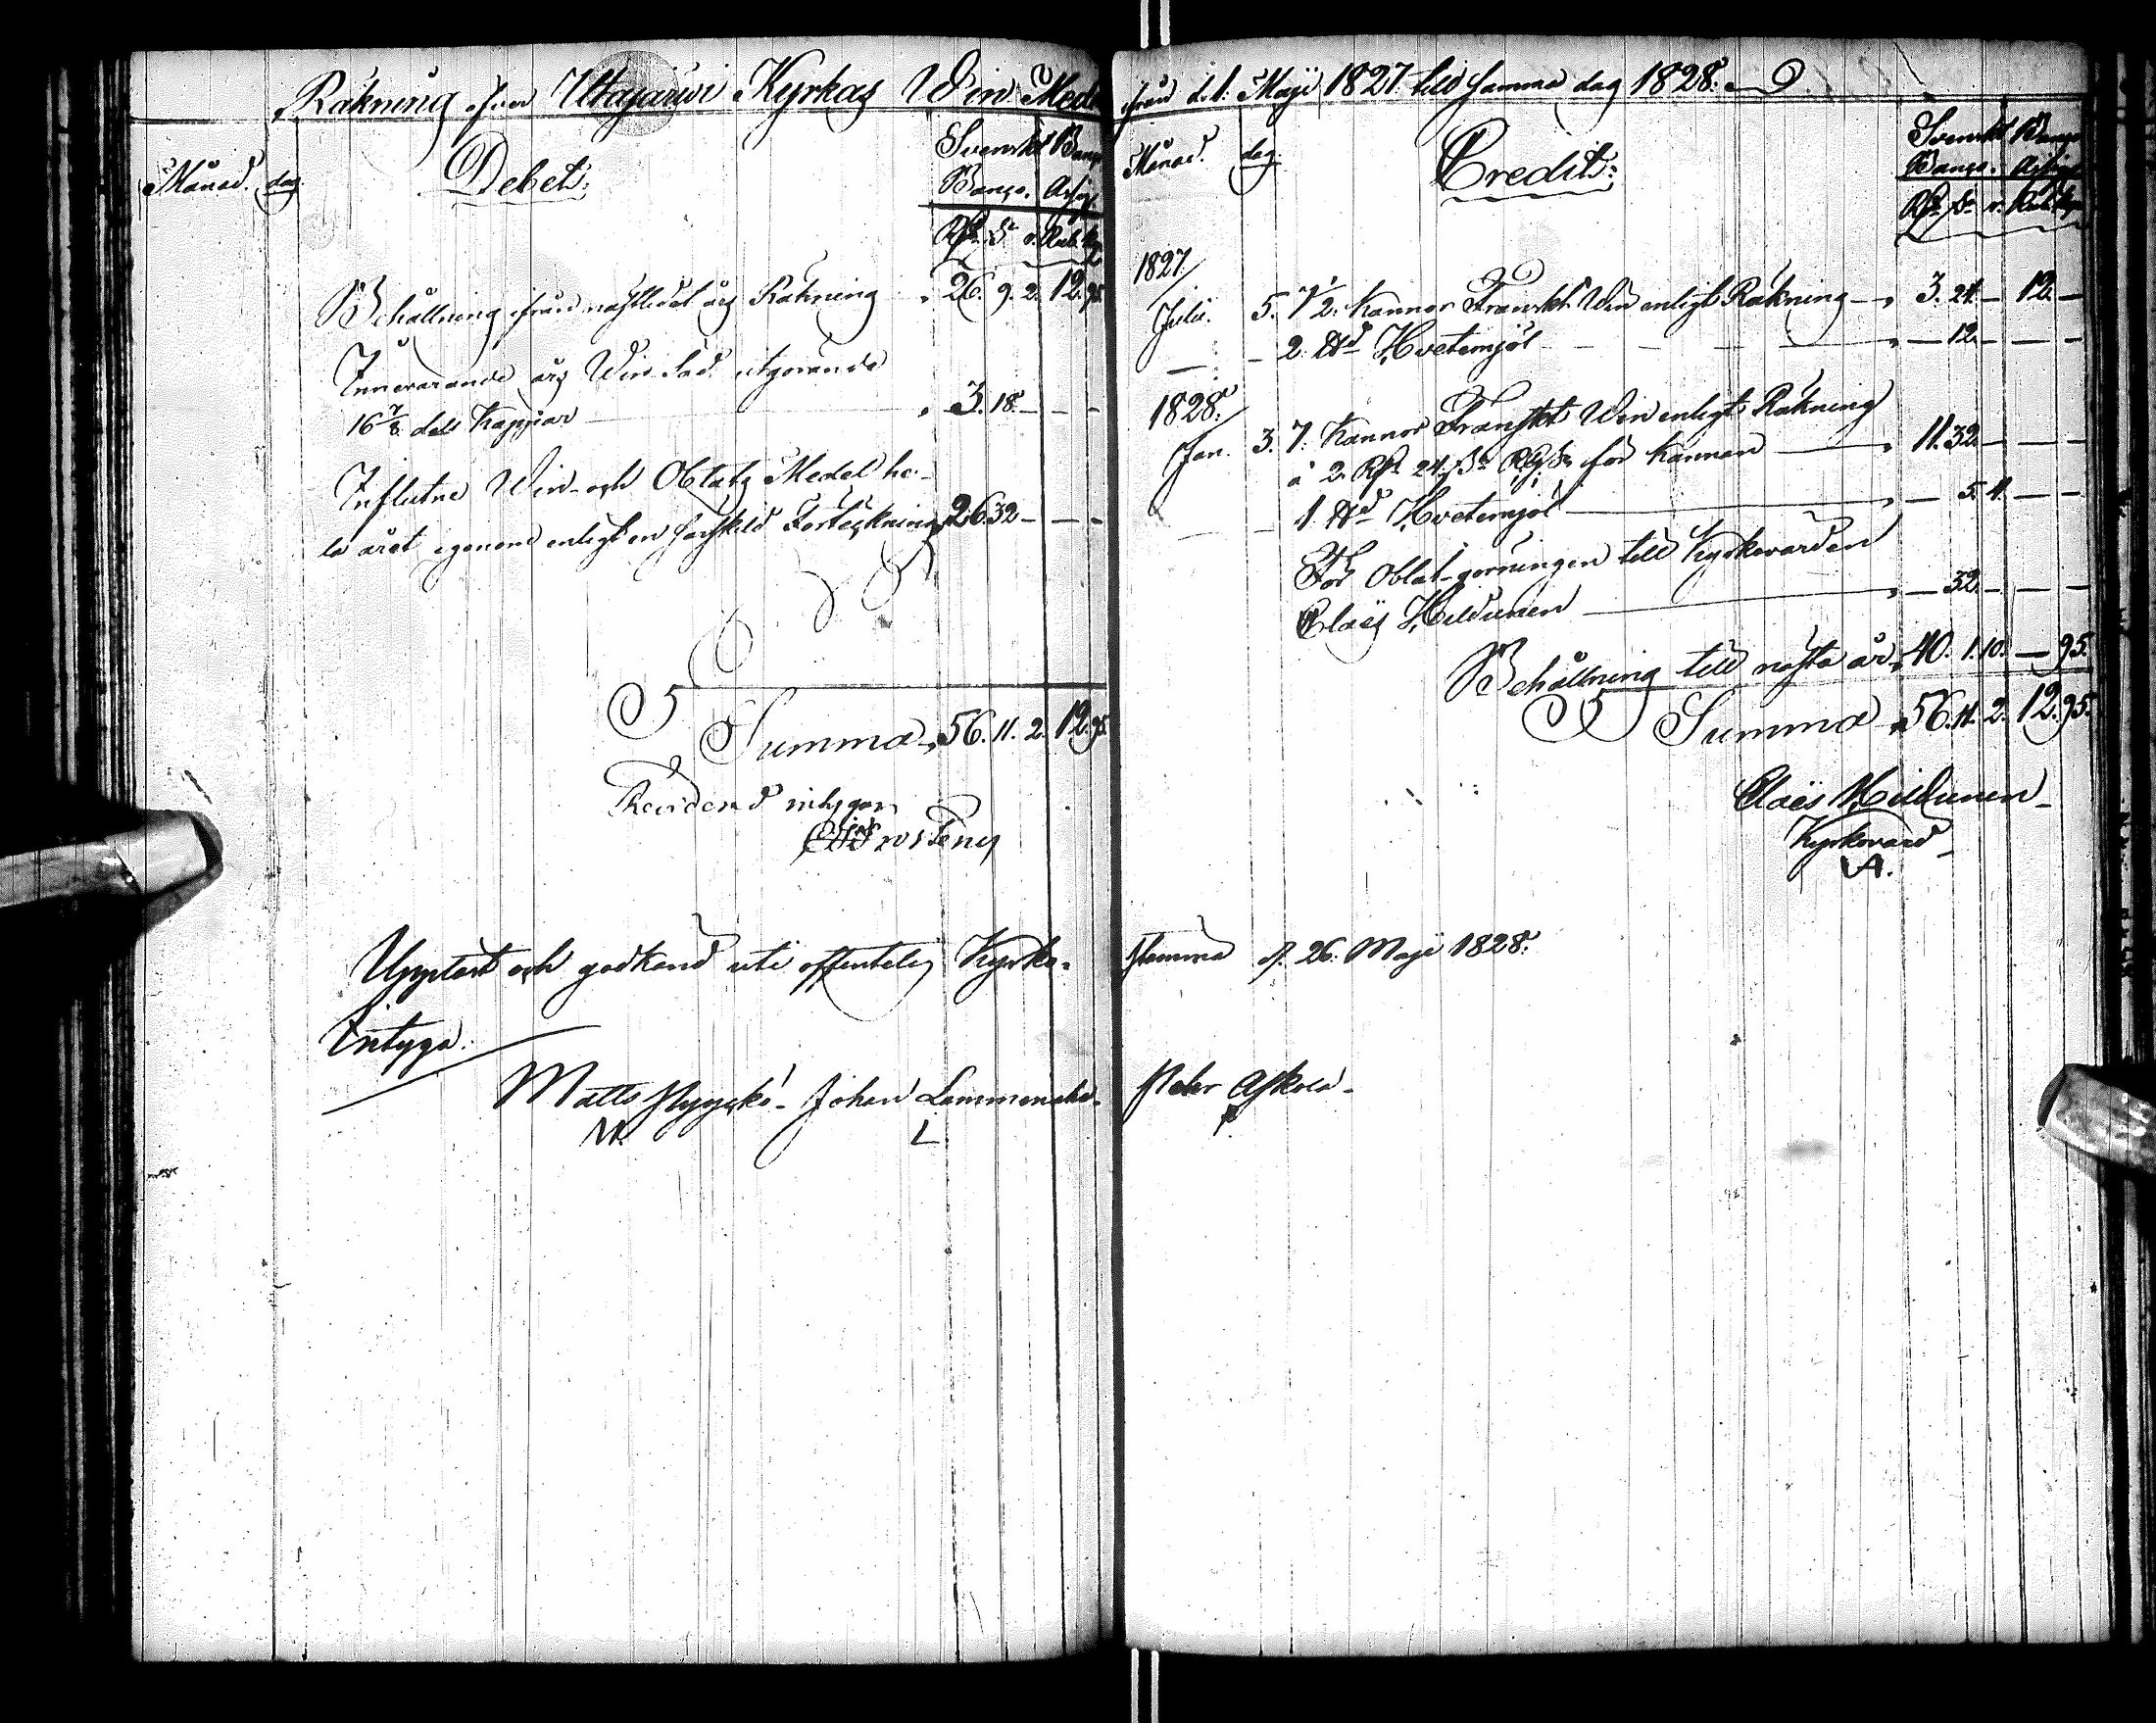 Räkning öfver Uttajärwi Kyrkas Win Medel
Månad. dag.
Debet:
Svenskt Banco
Banco. Assig.
Rd. s. r. Rub. Kop.
Behållning ifrån nästledet års Räkning 26. 9. 2. 12. 95.
Innevarande års Win Säd utgörande
16 7/8 dels Kappar 3. 18. — — —
Influtne Win- och Oblats Medel he-
la året igenom enligt en särskild Förteckning 26. 32 — — —
Summa 56. 11. 2. 12. 95.
Revideradt intygar
Uppläst och godkänd uti offentelig Kyrko-
Intyga.
Matts Hyyckö - Johan Lammenaho -
M. L
ifrån d. 1. Maji 1827 till samma dag 1828.
Månad. dag.
Credit:
Svenskt Banco
Banco. Assig.
Rd. s. r. Rub. Kop.
1827
Julii. 5. 7 1/2. Kannor Franskt Win enligt Räkning — 3. 24. — 12. —
— 2. ℔d Hvetemjöl — 12. — — —
1828.
Jan. 3. 7. Kannor Franskt Win enligt Räkning
à 2. Rd. 24. s. Rgs för Kannan — 11. 32. — — —
1 ℔d Hvetemjöl — 5. 4. — —
För Oblat-görningen till Kyrkovärden
Claës Hildunen — 32. — — —
Behållning till nästa år 40. 1. 10. — 95.
Summa 56. 11. 2. 12. 95.
Claës Hildunen
Kyrkovärd
stämma d. 26. Maji 1828.
Petter Askola -